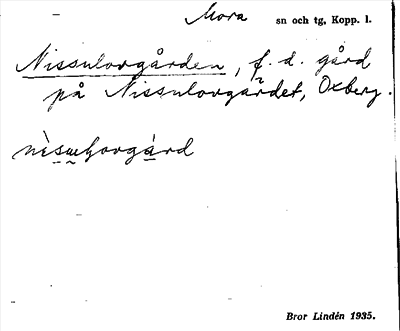 Mora sn och tg, Kopp. l.
Nissulovgården, f. d. gård
på Nissulovgårdet, Oxberg.
Bror Lindén 1935.